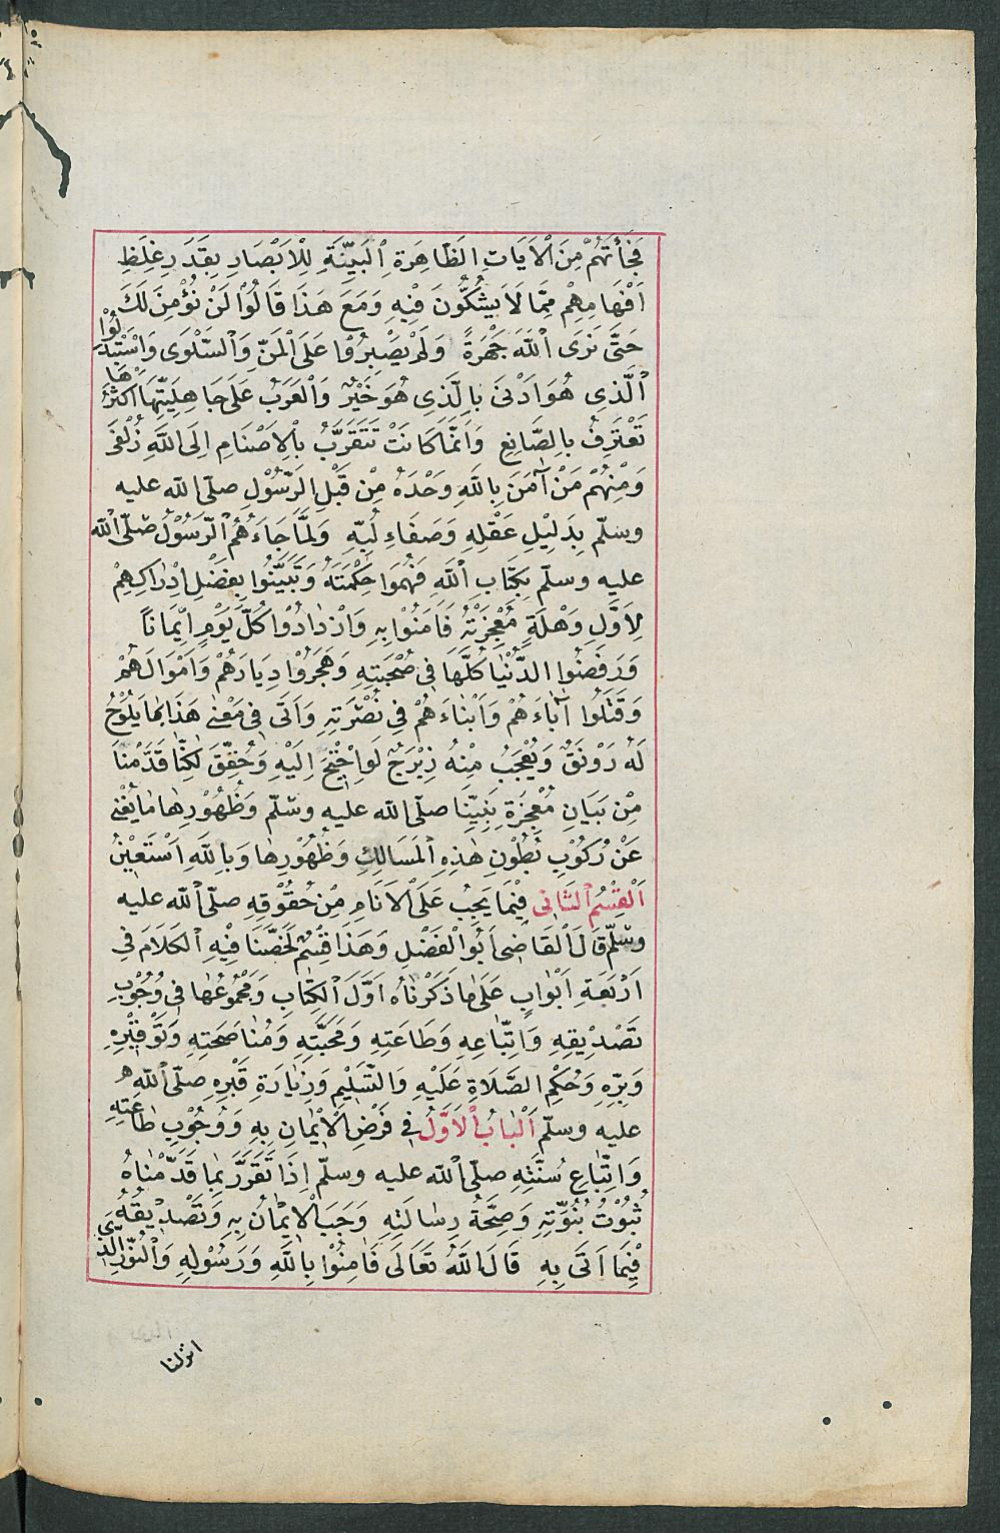 فَجَأَتْهُمْ مِنَ الْاَيَاتِ الظَّاهِرَةِ الْبَيِّنَةِ لِلْاَبْصَارِ بِقَدَرِ غِلَظِ
اَفْهَامِهِمْ مِمَّا لَا يَشُكُّونَ فِيْهِ وَمَعَ هَذَا قَالُوْا لَنْ نُؤْمِنَ لَكَ
حَتَّى نَرَى اللّٰهَ جَهْرَةً وَلَمْ يَصْبِرُوْا عَلَى الْمَنِّ وَالسَّلْوَى وَاسْتَبْدَلُوْا
الَّذِى هُوَ اَدْنَى بِالَّذِى هُوَ خَيْرٌ وَالْعَرَبُ عَلَى جَاهِلِيَّتِهَا اَكْثَرُهَا
تَعْتَرِفُ بِالصَّانِعِ وَاِنَّمَا كَانَتْ تَتَقَرَّبُ بِالْاَصْنَامِ اِلَى اللّٰهِ زُلْفَى
وَمِنْهُمْ مَنْ آمَنَ بِاللّٰهِ وَحْدَهُ مِنْ قَبْلِ الرَّسُوْلِ صلّى الله عليه
وسلّم بِدَلِيْلِ عَقْلِهِ وَصَفَاءِ لُبِّهِ وَلَمَّا جَاءَهُمُ الرَّسُوْلُ صلّى الله
عليه وسلّم بِكِتَابِ اللّٰهِ فَهِمُوا حِكْمَتَهُ وَتَبَيَّنُوا بِفَضْلِ اِدْرَاكِهِمْ
لِاَوَّلِ وَهْلَةٍ مُعْجِزَتَهُ فَاٰمَنُوْا بِهِ وَازْدَادُوْا كُلَّ يَوْمٍ اِيْمَانًا
وَرَفَضُوا الدُّنْيَا كُلَّهَا فِى صُحْبَتِهِ وَهَجَرُوْا دِيَارَهُمْ وَاَمْوَالَهُمْ
وَقَتَلُوا آبَاءَهُمْ وَاَبْنَاءَهُمْ فِى نُصْرَتِهِ وَاَتَى فِى مَعْنَى هَذَا بِمَا يَلُوْحُ
لَهُ رَوْنَقٌ وَيُعْجَبُ مِنْهُ زِبْرَجٌ لَوِ احْتِيْجَ اِلَيْهِ وَحُقِّقَ لٰكِنَّا قَدَّمْنَا
مِنْ بَيَانِ مُعْجِزَةِ نَبِيِّنَا صلّى الله عليه وسلّم وَظُهُوْرِهَا مَا يُغْنِى
عَنْ رُكُوْبِ بُطُوْنِ هٰذِهِ الْمَسَالِكِ وَظُهُوْرِهَا وَبِاللّٰهِ اَسْتَعِيْنُ
اَلْقِسْمُ الثَّانِى فِيْمَا يَجِبُ عَلَى الْاَنَامِ مِنْ حُقُوْقِهِ صلّى الله عليه
وسلّم قَالَ الْقَاضِى اَبُوا لْفَضْلِ وَهَذَا قِسْمٌ لَخَّصْنَا فِيْهِ الْكَلَامَ فِى
اَرْبَعَةِ اَبْوَابٍ عَلَى مَا ذَكَرْنَاهُ اَوَّلَ الْكِتَابِ وَمَجْمُوْعُهَا فِى وُجُوْبِ
تَصْدِيْقِهِ وَاتِّبَاعِهِ وَطَاعَتِهِ وَمَحَبَّتِهِ وَمُنَاصَحَتِهِ وَتَوْقِيْرِهِ
وَبِرِّهِ وَحُكْمِ الصَّلَاةِ عَلَيْهِ وَالتَّسْلِيْمِ وَزِيَارَةِ قَبْرِهِ صلّى الله
عليه وسلّم اَلْبَابُ الْاَوَّلُ فِى فَرْضِ الْاِيْمَانِ بِهِ وَوُجُوْبِ طَاعَتِهِ
وَاتِّبَاعِ سُنَّتِهِ صلّى الله عليه وسلّم اِذَا تَقَرَّرَ بِمَا قَدَّمْنَاهُ
ثُبُوْتُ نُبُوَّتِهِ وَصِحَّةُ رِسَالَتِهِ وَجَبَ الْاِيْمَانُ بِهِ وَتَصْدِيْقُهُ
فِيْمَا اَتَى بِهِ قَالَ اللّٰهُ تَعَالَى فَاٰمِنُوْا بِاللّٰهِ وَرَسُوْلِهِ وَالنُّوْرِ الَّذِى
انزلنا